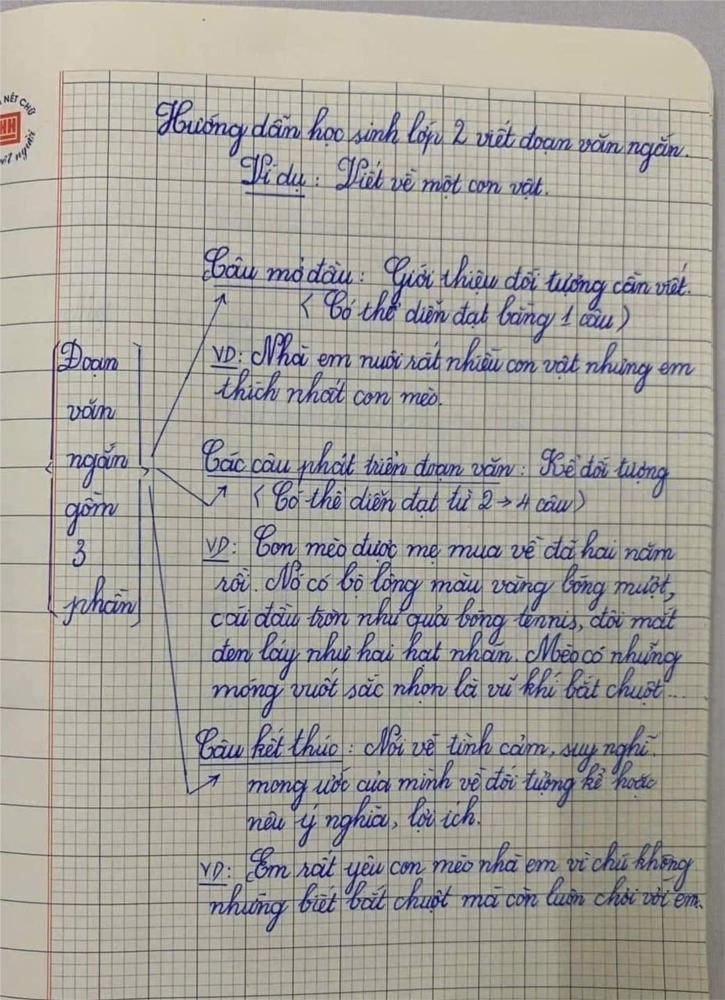 NÉT CHỮ
Hướng dẫn học sinh lớp 2 viết đoạn văn ngắn.
Ví dụ: Viết về một con vật.
Câu mở đầu: Giới thiệu đối tượng cần viết.
(Có thể diễn đạt bằng 1 câu)
VD: Nhà em nuôi rất nhiều con vật nhưng em
thích nhất con mèo.
Đoạn
văn
ngắn
gồm
3
phần
Các câu phát triển đoạn văn: Kể đối tượng
(Có thể diễn đạt từ 2 → 4 câu)
VD: Con mèo được mẹ mua về đã hai năm
rồi. Nó có bộ lông màu vàng bóng mượt,
cái đầu tròn như quả bóng tennis, đôi mắt
đen láy như hai hạt nhãn. Mèo có những
móng vuốt sắc nhọn là vũ khí bắt chuột...
Câu kết thúc: Nói về tình cảm, suy nghĩ
mong ước của mình về đối tượng kể hoặc
nêu ý nghĩa, lợi ích.
VD: Em rất yêu con mèo nhà em vì chú không
những biết bắt chuột mà còn luôn chơi với em.